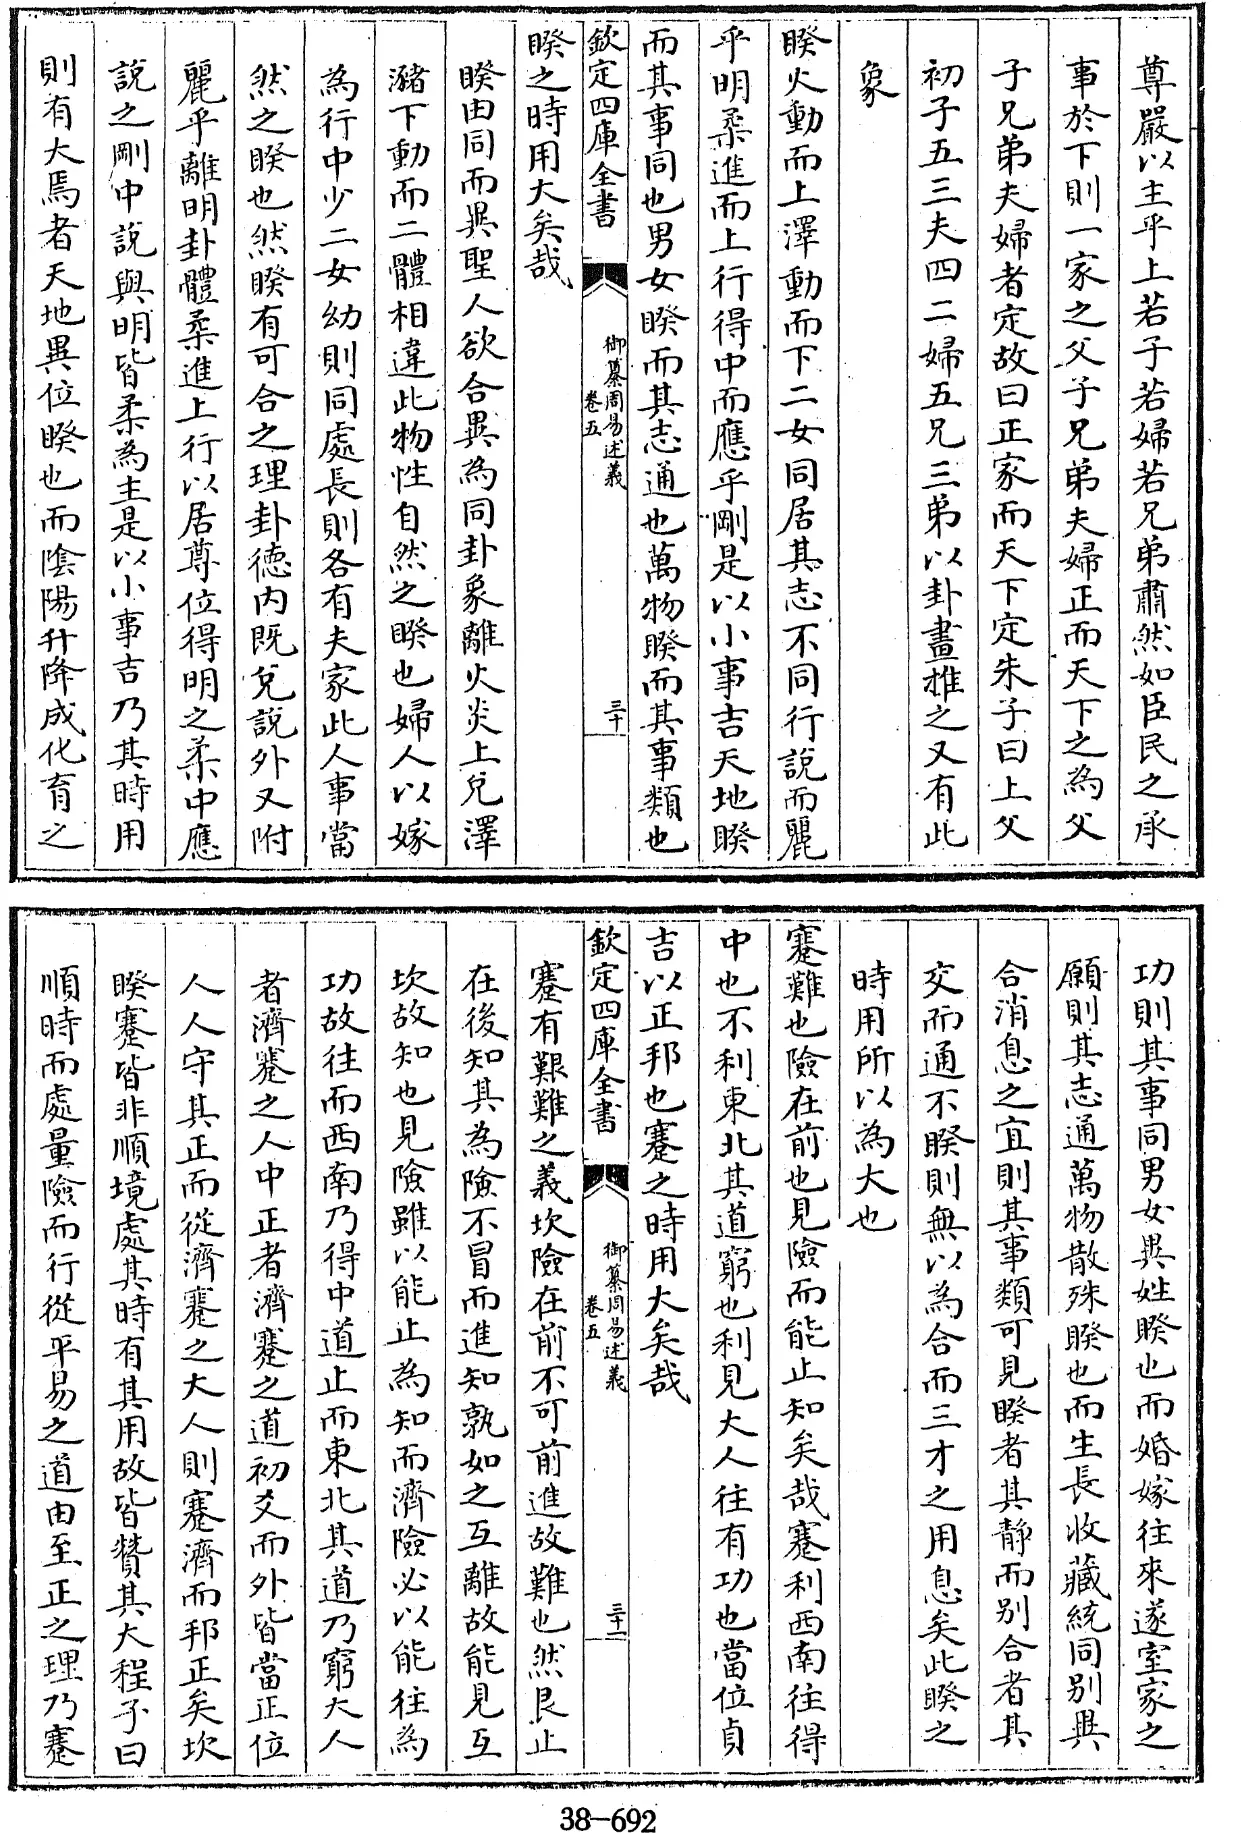 尊嚴以主乎上若子若婦若兄弟肅然如臣民之承
事於下則一家之父子兄弟夫婦正而天下之為父
子兄弟夫婦者定故曰正家而天下定朱子曰上父
初子五三夫四二婦五兄三弟以卦畫推之又有此
象
睽火動而上澤動而下二女同居其志不同行說而麗
乎明柔進而上行得中而應乎剛是以小事吉天地睽
而其事同也男女睽而其志通也萬物睽而其事類也
欽定四庫全書
御纂周易述義
卷五
三十
睽之時用大矣哉
睽由同而異聖人欲合異為同卦象離火炎上兌澤
瀦下動而二體相違此物性自然之睽也婦人以嫁
為行中少二女幼則同處長則各有夫家此人事當
然之睽也然睽有可合之理卦德內既兌說外又附
麗乎離明卦體柔進上行以居尊位得明之柔中應
說之剛中說與明皆柔為主是以小事吉乃其時用
則有大焉者天地異位睽也而陰陽升降成化育之
功則其事同男女異姓睽也而婚嫁往來遂室家之
願則其志通萬物散殊睽也而生長收藏統同別異
合消息之宜則其事類可見睽者其静而別合者其
交而通不睽則無以為合而三才之用息矣此睽之
時用所以為大也
蹇難也險在前也見險而能止知矣哉蹇利西南往得
中也不利東北其道窮也利見大人往有功也當位貞
吉以正邦也蹇之時用大矣哉
欽定四庫全書
御纂周易述義
卷五
三十一
蹇有艱難之義坎險在前不可前進故難也然艮止
在後知其為險不冒而進知孰如之互離故能見互
坎故知也見險雖以能止為知而濟險必以能往為
功故往而西南乃得中道止而東北其道乃窮大人
者濟蹇之人中正者濟蹇之道初爻而外皆當正位
人人守其正而從濟蹇之大人則蹇濟而邦正矣坎
睽蹇皆非順境處其時有其用故皆贊其大程子曰
順時而處量險而行從平易之道由至正之理乃蹇
38-692